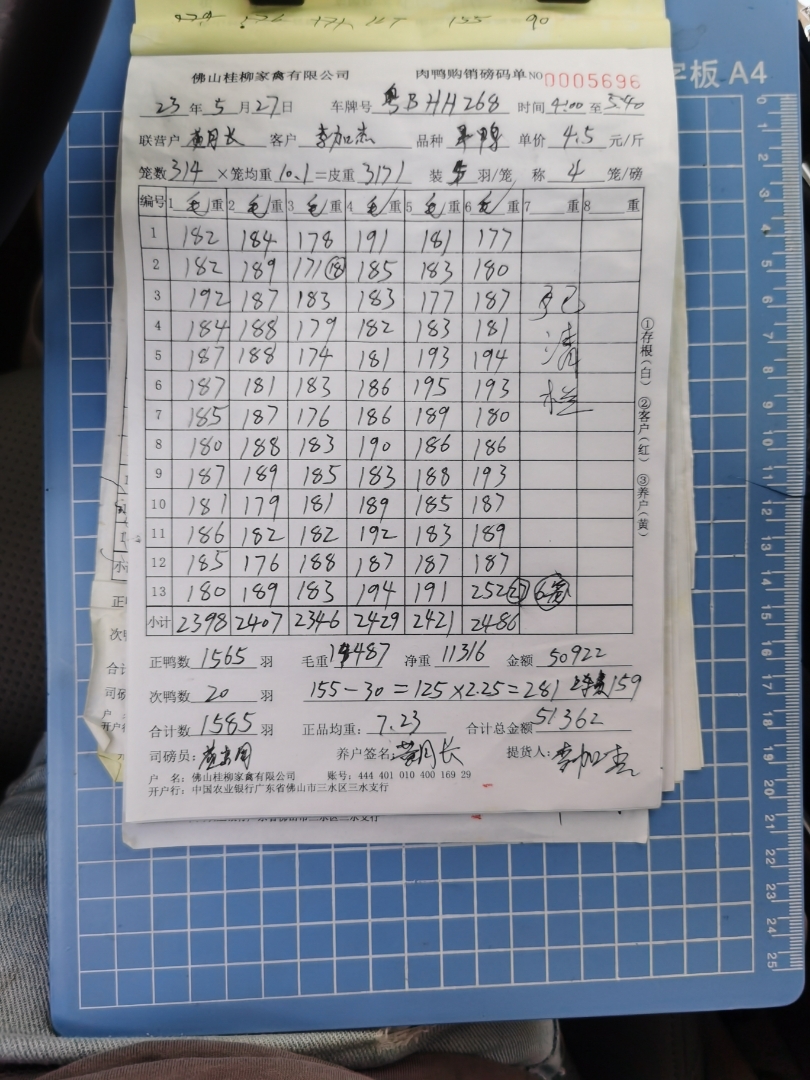 155 90
佛山桂柳家禽有限公司 肉鸭购销磅码单 NO 0005696
字板 A4
23 年 5 月 27 日 车牌号 粤BHH268 时间 4:00 至 5:40
联营户 黄月长 客户 李加杰 品种 鸭 单价 4.5 元/斤
笼数 314 ×笼均重 10.1 =皮重 3171 装 5 羽/笼 称 4 笼/磅
编号 1 毛 重 2 毛 重 3 毛 重 4 毛 重 5 毛 重 6 毛 重 7 重 8 重
1 182 184 178 191 181 177
2 182 189 171 18 185 183 180
3 192 187 183 183 177 187
4 184 188 179 182 183 181
5 187 188 174 181 193 194
6 187 181 183 186 195 193
7 185 187 176 186 189 180
8 180 188 183 190 186 186
9 187 189 185 183 188 193
10 181 179 181 189 185 187
11 186 182 182 192 183 189
12 185 176 188 187 187 187
13 180 189 183 194 191 252 27
小计 2398 2407 2346 2429 2421 2486
已清栏
①存根(白) ②客户(红) ③养户(黄)
正鸭数 1565 羽 毛重 14487 净重 11316 金额 50922
次鸭数 20 羽 155-30=125×2.25=281 159
合计数 1585 羽 正品均重: 7.23 合计总金额 51362
司磅员: 养户签名: 黄月长 提货人: 李加杰
户 名: 佛山桂柳家禽有限公司 账号: 444 401 010 400 169 29
开户行: 中国农业银行广东省佛山市三水区三水支行
0 1 2 3 4 5 6 7 8 9 10 11 12 13 14 15 16 17 18 19 20 21 22 23 24 25